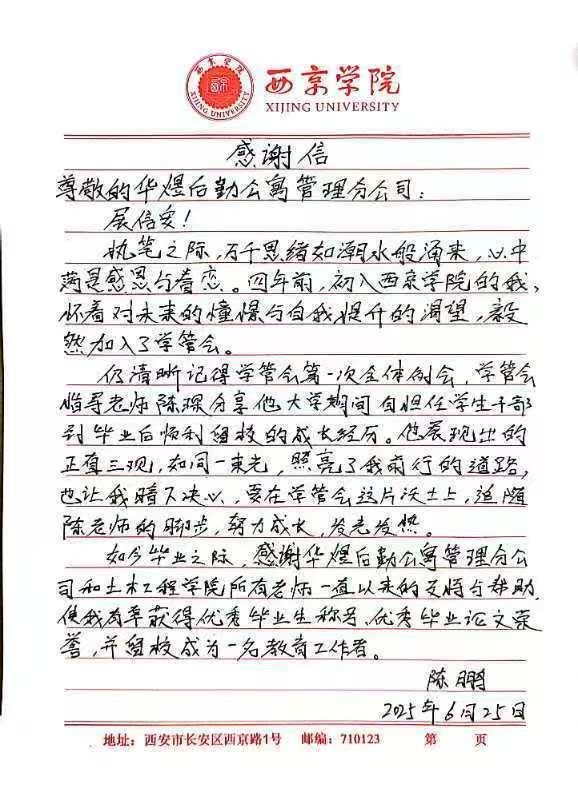 西京学院
XIJING UNIVERSITY
西京学院
XIJING UNIVERSITY
感谢信
尊敬的华煜后勤公寓管理分公司：
展信安！
执笔之际，万千思绪如潮水般涌来，心中
满是感恩与眷恋。四年前，初入西京学院的我，
怀着对未来的憧憬与自我提升的渴望，毅
然加入了学管会。
仍清晰记得学管会第一次全体例会，学管会
指导老师陈琛分享他大学期间自担任学生干部
到毕业后顺利留校的成长经历。他展现出的
正直三观，如同一束光，照亮了我前行的道路，
也让我暗下决心，要在学管会这片沃土上，追随
陈老师的脚步，努力成长，发光发热。
如今毕业之际，感谢华煜后勤公寓管理分公
司和土木工程学院所有老师一直以来的支持与帮助，
使我有幸获得优秀毕业生称号、优秀毕业论文荣
誉，并留校成为一名教育工作者。
陈鹏
2025年6月25日
地址：西安市长安区西京路1号 邮编：710123 第 页